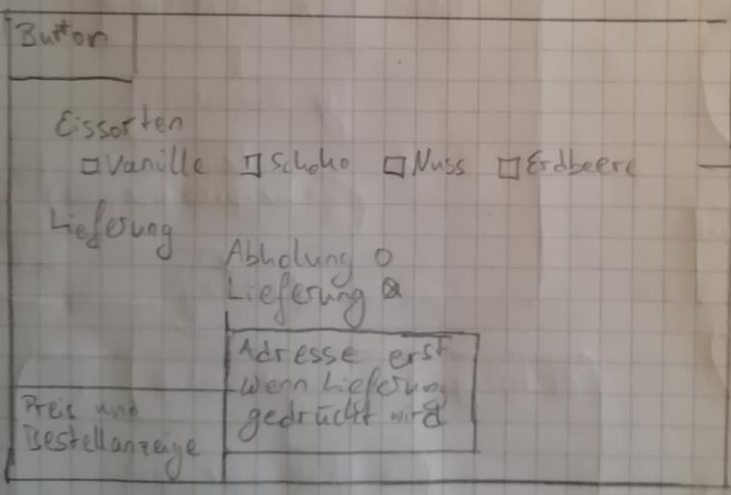 Button
Eissorten
Vanille Schoko Nuss Erdbeere
Lieferung
Abholung
Lieferung
Adresse erst
wenn Lieferung
gedrückt wird
Preis und
Bestellanzeige